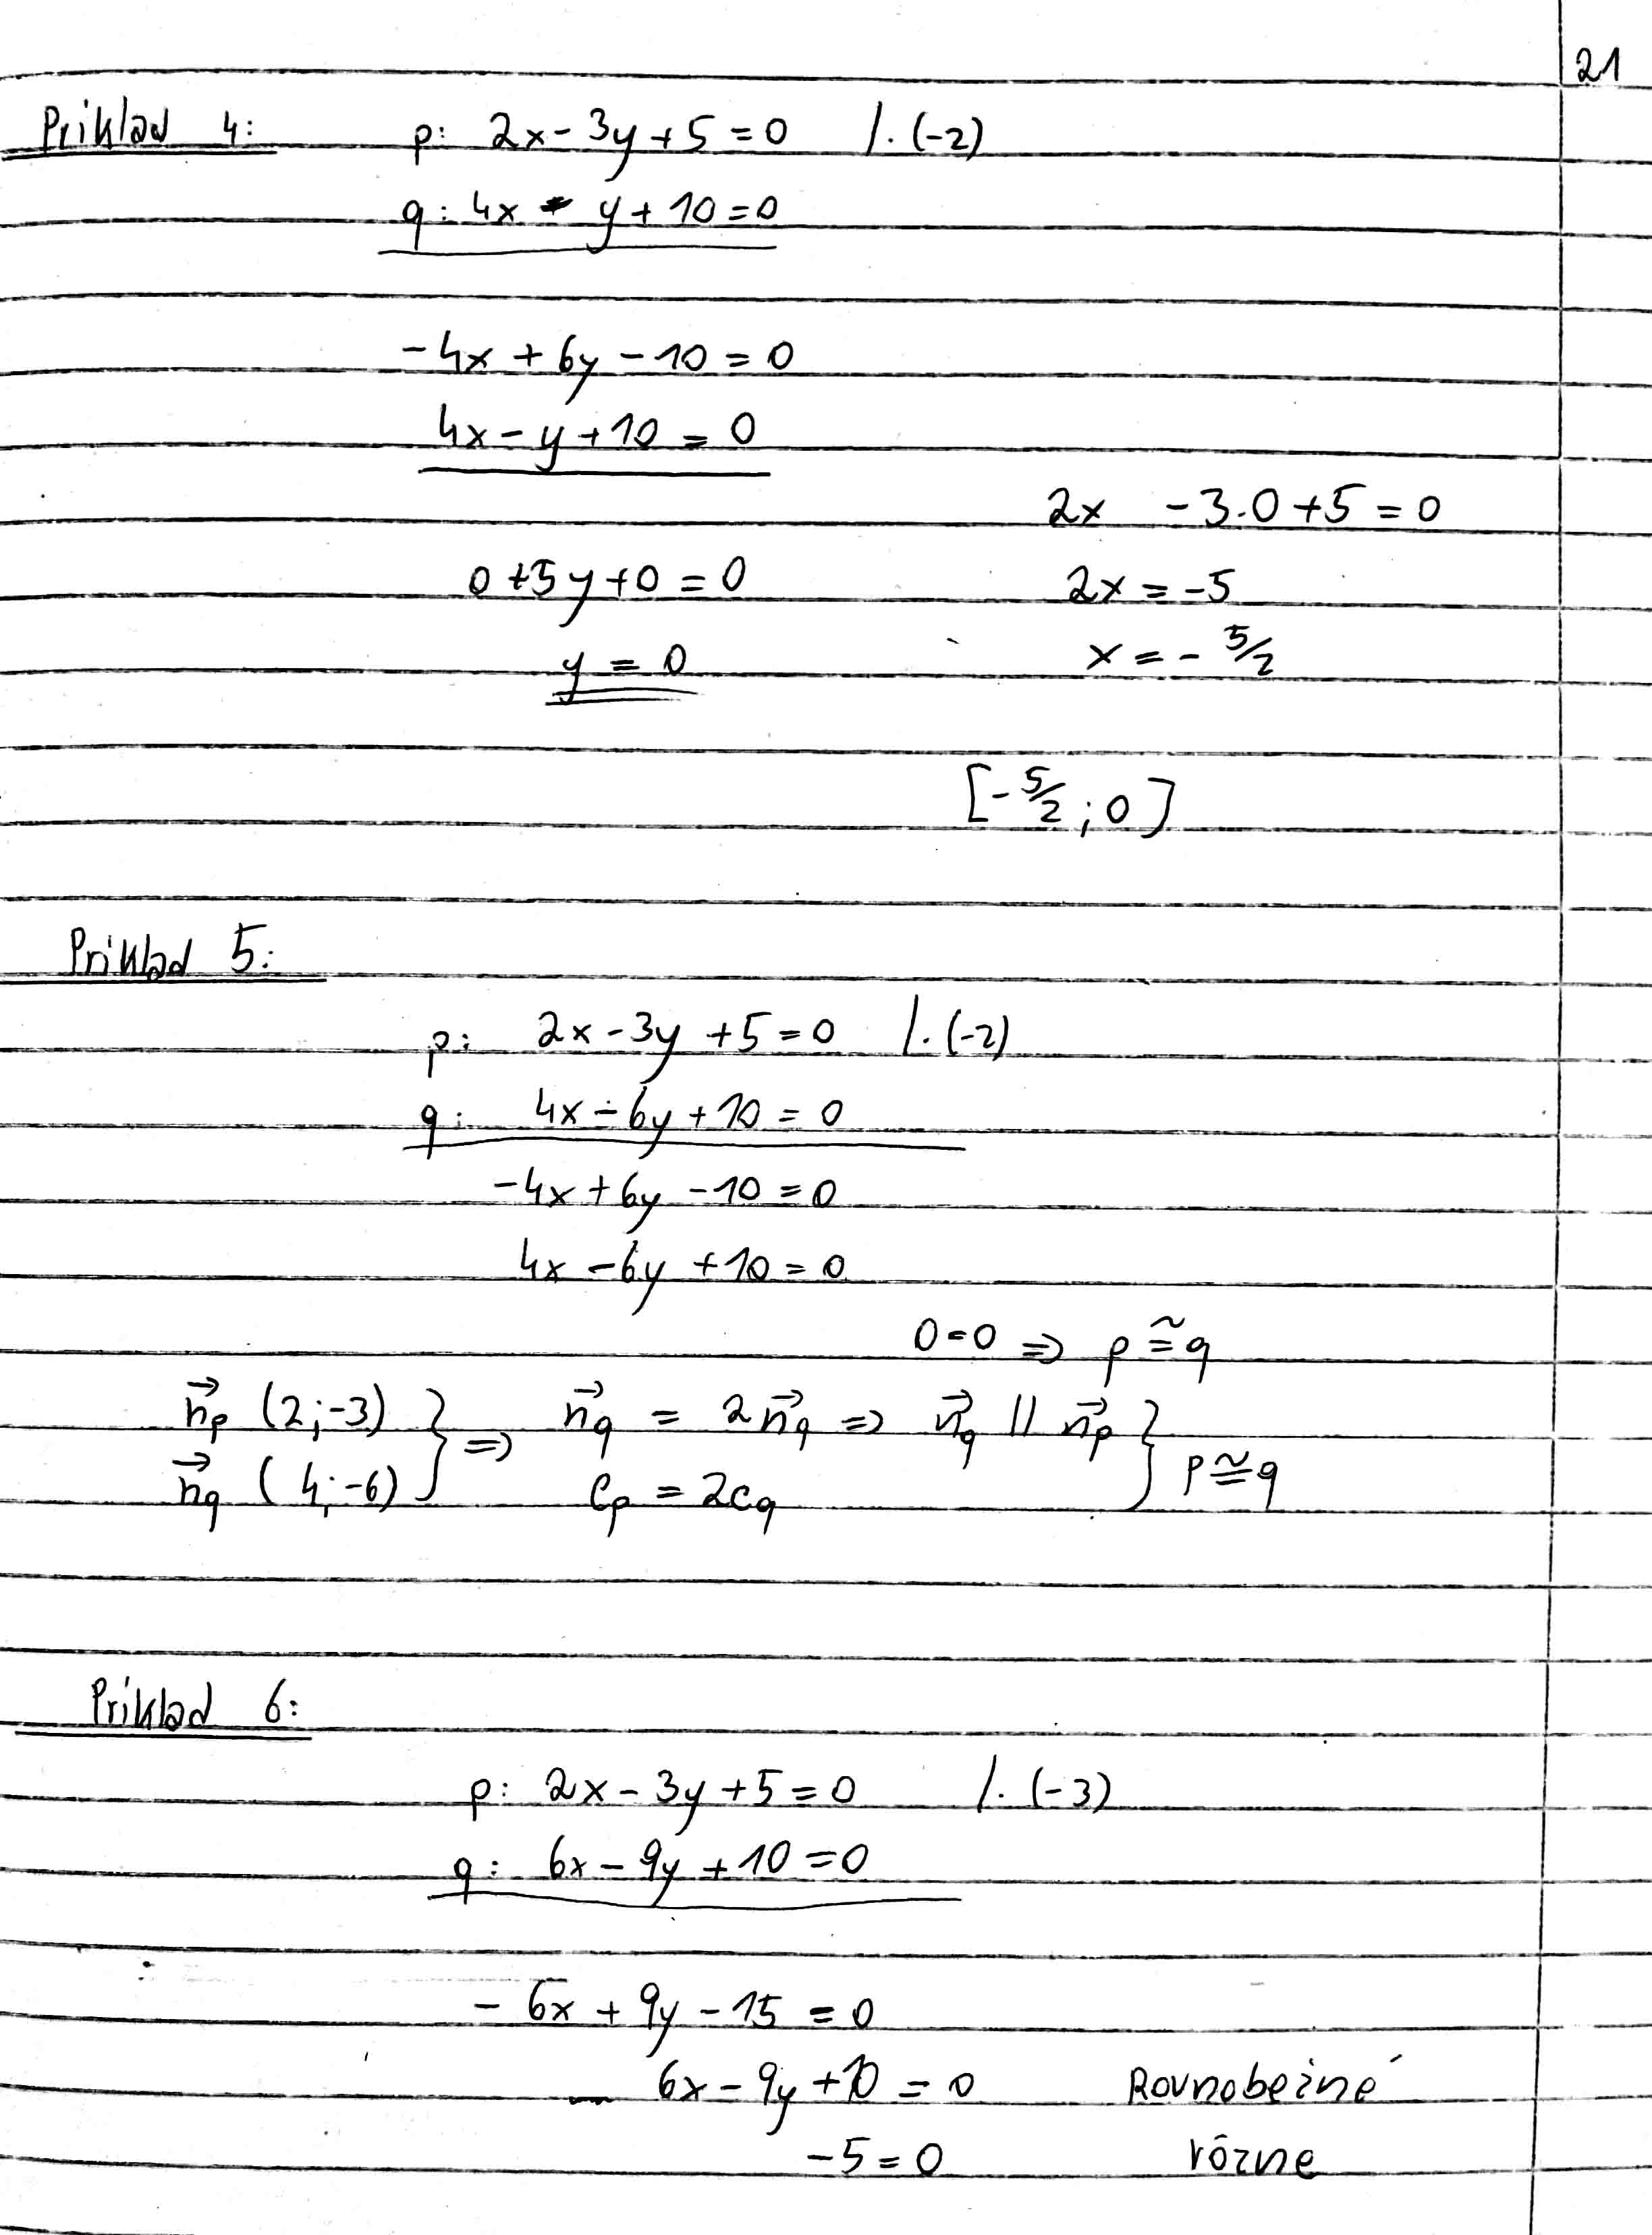 21
Príklad 4: p: 2x - 3y + 5 = 0 /. (-2)
q: 4x - y + 10 = 0
-4x + 6y - 10 = 0
4x - y + 10 = 0
2x - 3.0 + 5 = 0
0 + 5y + 0 = 0 2x = -5
y = 0 x = - 5/2
[- 5/2 ; 0]
Príklad 5:
p: 2x - 3y + 5 = 0 /. (-2)
q: 4x - 6y + 10 = 0
-4x + 6y - 10 = 0
4x - 6y + 10 = 0
0 = 0 ⇒ p ≅ q
n⃗p (2;-3) } ⇒ n⃗q = 2n⃗q ⇒ n⃗q || n⃗p } p ≅ q
n⃗q (4;-6) cp = 2cq
Príklad 6:
p: 2x - 3y + 5 = 0 /. (-3)
q: 6x - 9y + 10 = 0
- 6x + 9y - 15 = 0
6x - 9y + 10 = 0 Rovnobežné
-5 = 0 rôzne